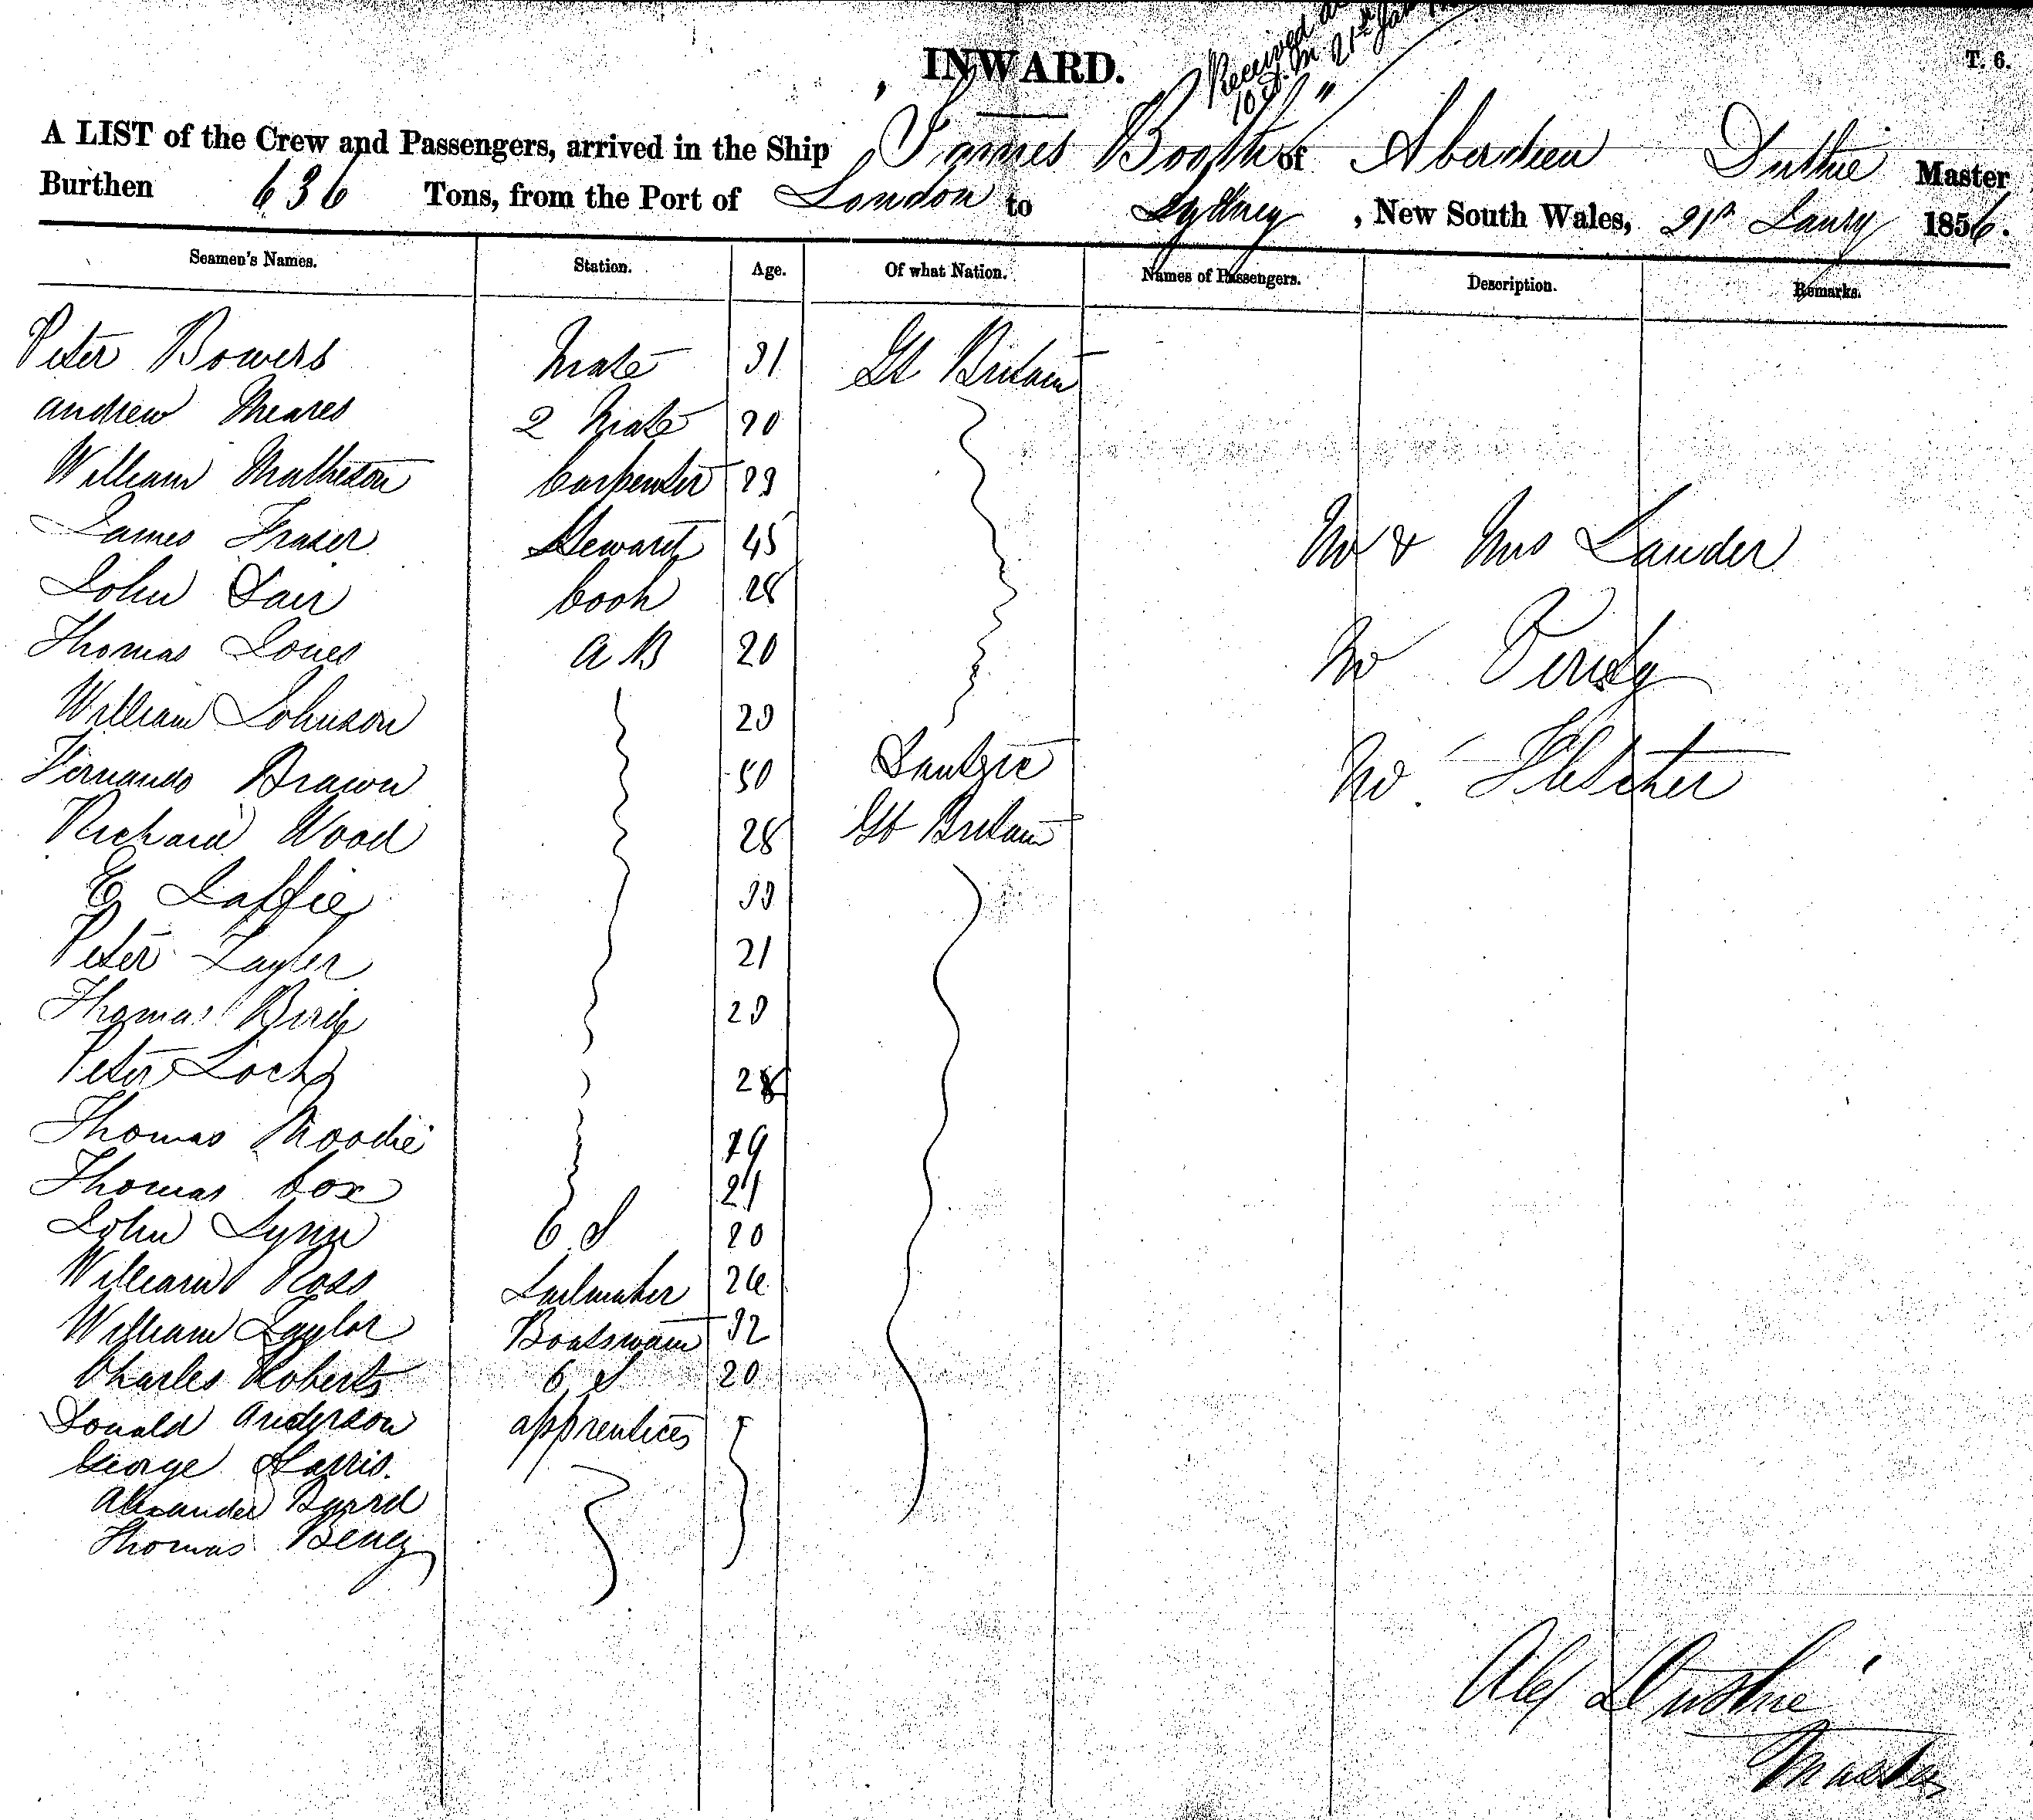 Received
INWARD.
T. 6.
10 21st
A LIST of the Crew and Passengers, arrived in the Ship James Booth of Aberdeen Duthie Master
Burthen 636 Tons, from the Port of London to Sydney, New South Wales, 21st Jany 1856.
Seamen's Names. Station. Age. Of what Nation. Names of Passengers. Description. Remarks.
Peter Bowers Mate 31 Gt Britain
Andrew Meares 2 Mate 20
William Matheson Carpenter 23
James Fraser Steward 45 Mr & Mrs Lauder
John Fair Cook 28
Thomas Jones A B 20 Mr
William Johnson 23
Fernando Brawn 50 Dantzic Mr Fletcher
Richard Wood 28 Gt Britain
E Jaffie 33
Peter Tayler 21
Thomas Bird 23
Peter Loch 28
Thomas Moodie 19
Thomas Cox 21
John Lynn O S 20
William Ross Sailmaker 26
William Taylor Boatswain 32
Charles Roberts O S 20
Donald Anderson apprentices
George Harris.
Alexander
Thomas
Alex Duthie
Master